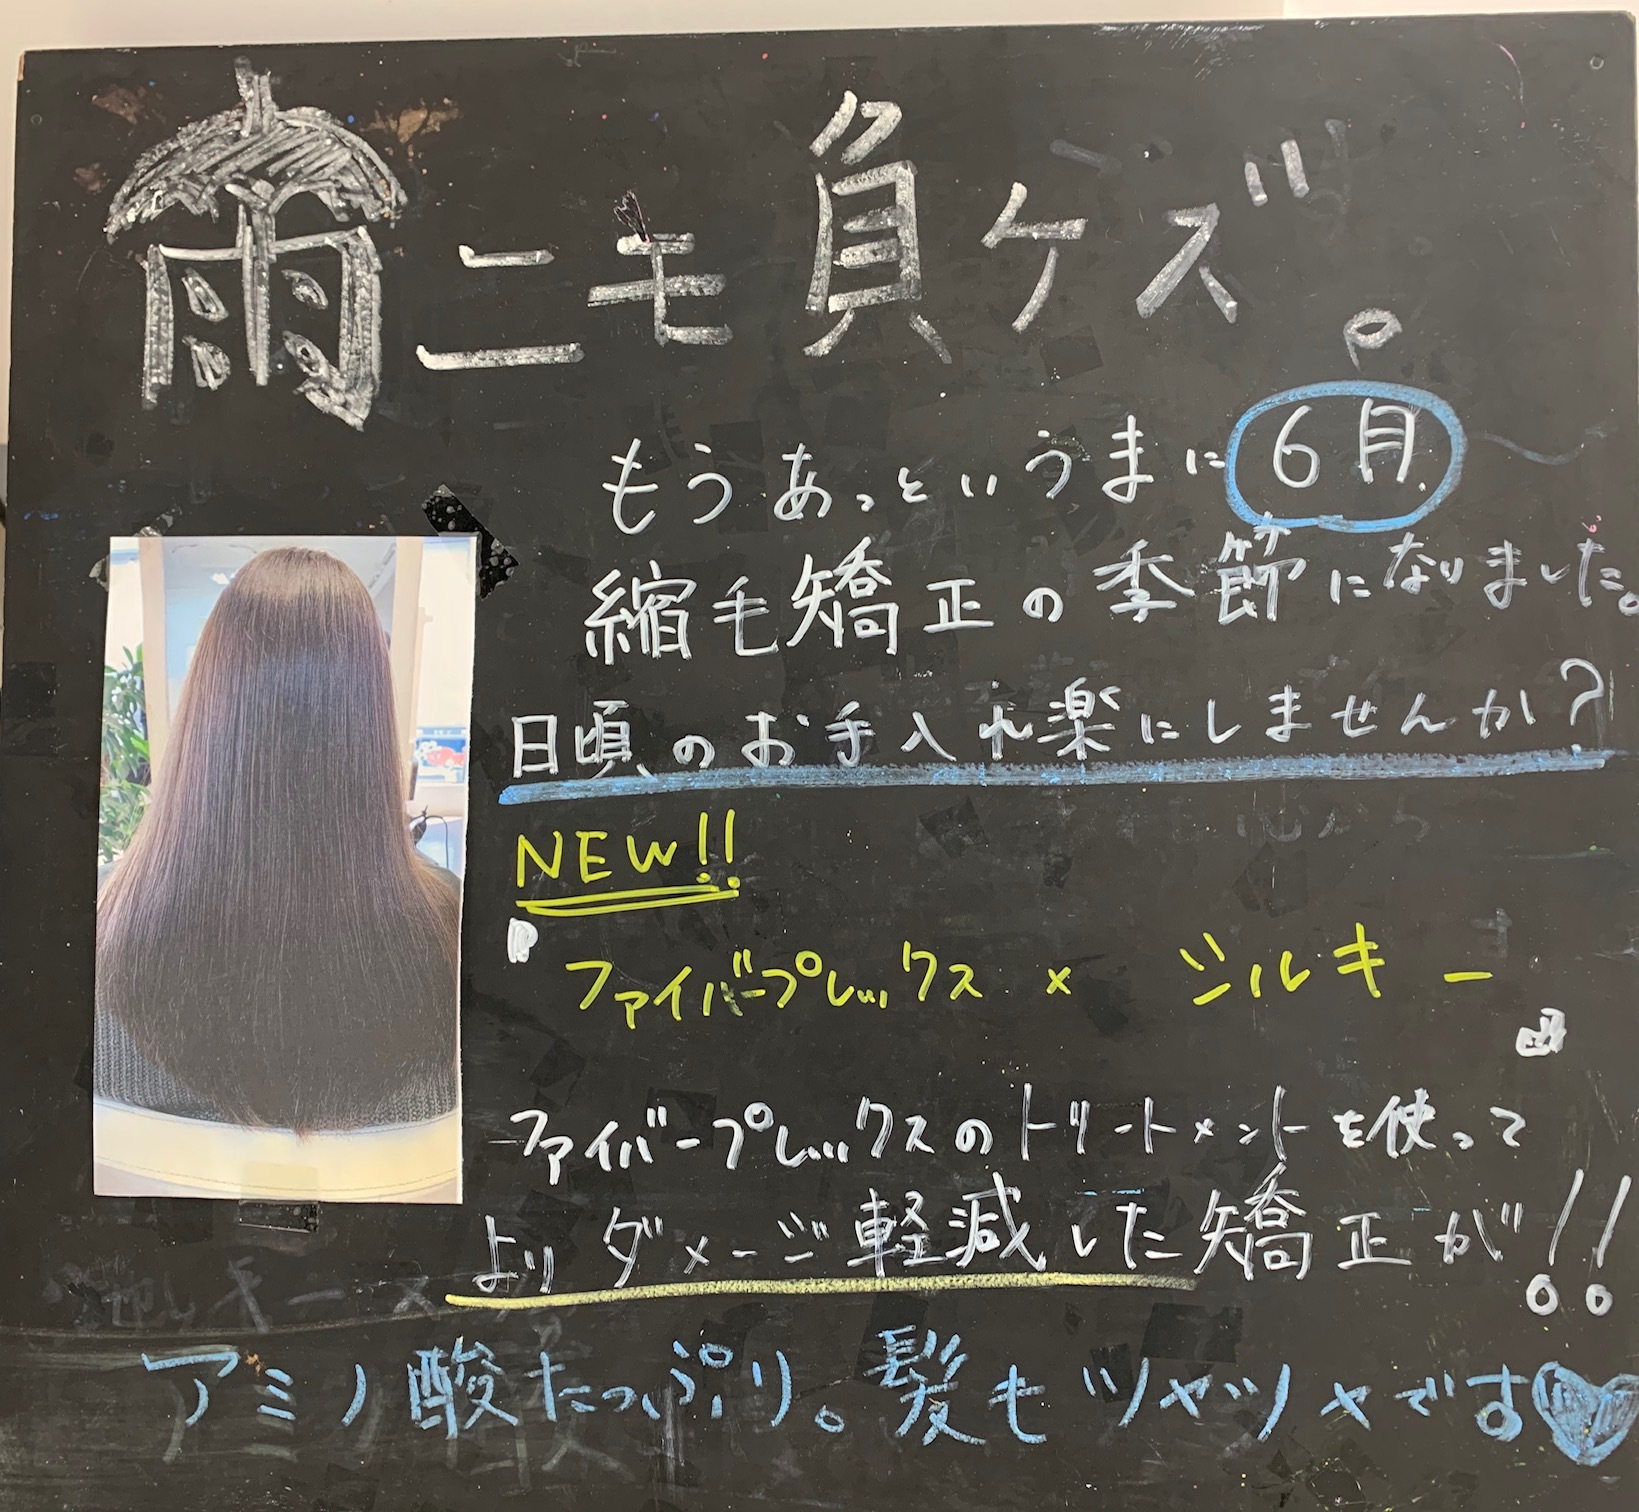 雨ニモ負ケズ。
もうあっというまに6月.
縮毛矯正の季節になりました。
日頃のお手入れ楽にしませんか?
NEW!!
「ファイバープレックス × シルキー」
ファイバープレックスのトリートメントを使って
よりダメージ軽減した矯正が!!
アミノ酸たっぷり。髪もツヤツヤです